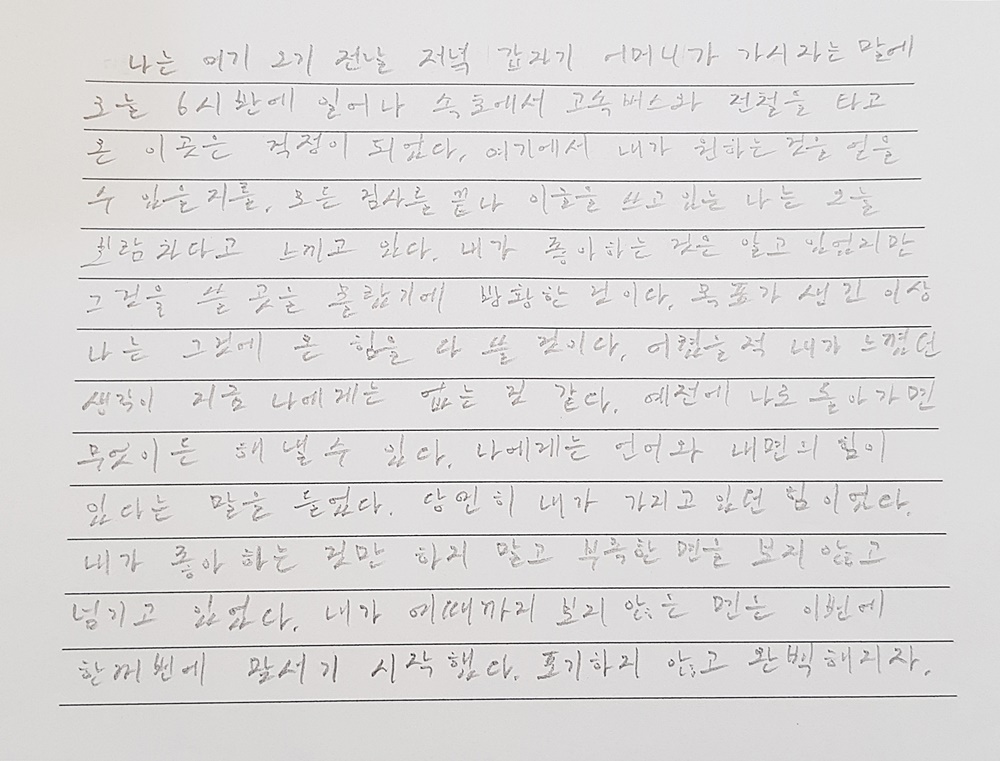 나는 여기 오기 전날 저녁 갑자기 어머니가 가시자는 말에
오늘 6시 반에 일어나 속초에서 고속버스와 전철을 타고
온 이곳은 걱정이 되었다. 여기에서 내가 원하는 것을 얻을
수 있을지를, 모든 검사를 끝나 이글을 쓰고 있는 나는 오늘
보람차다고 느끼고 있다. 내가 좋아하는 것은 알고 있었지만
그것을 쓸 곳을 몰랐기에 방황한 것이다. 목표가 생긴 이상
나는 그것에 온 힘을 다 쓸 것이다. 어렸을적 내가 느꼈던
생각이 지금 나에게는 없는 것 같다. 예전에 나로 돌아가면
무엇이든 해낼 수 있다. 나에게는 언어와 내면의 힘이
있다는 말을 들었다. 당연히 내가 가지고 있던 힘이었다.
내가 좋아하는 것만 하지 말고 부족한 면을 보지 않고
넘기고 있었다. 내가 여때까지 보지 않은 면은 이번에
한꺼번에 맞서기 시작했다. 포기하지 않고 완벽해지자.